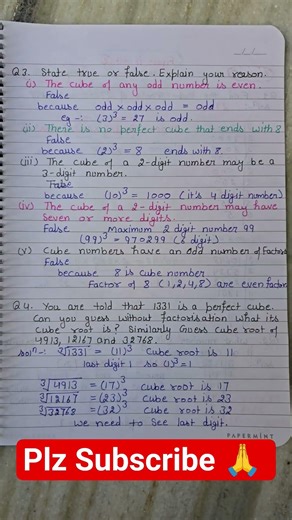 Q3. State true or false. Explain your reason.
(i) The cube of any odd number is even.
False
because odd × odd × odd = odd
eg -: (3)³ = 27 is odd.
(ii) There is no perfect cube that ends with 8.
False
because (2)³ = 8 ends with 8.
(iii) The cube of a 2-digit number may be a
3-digit number.
because (10)³ = 1000 (it's 4 digit number)
(iv) The cube of a 2-digit number may have
Seven or more digits.
False maximum 2 digit number 99
(99)³ = 970299 (6 digit)
(v) Cube numbers have an odd number of factors
False
because 8 is cube number
Factor of 8 (1,2,4,8) are even factors
Q4. You are told that 1331 is a perfect cube.
Can you guess without factorisation what its
cube root is? Similarly Guess cube root of
4913, 12167 and 32768.
solⁿ -: ∛1331 = (11)³ cube root is 11
last digit 1 so (1)³=1
∛4913 = (17)³ cube root is 17
∛12167 = (23)³ cube root is 23
∛32768 = (32)³ cube root is 32
we need to see last digit.
PAPERMINT
Plz Subscribe 🙏